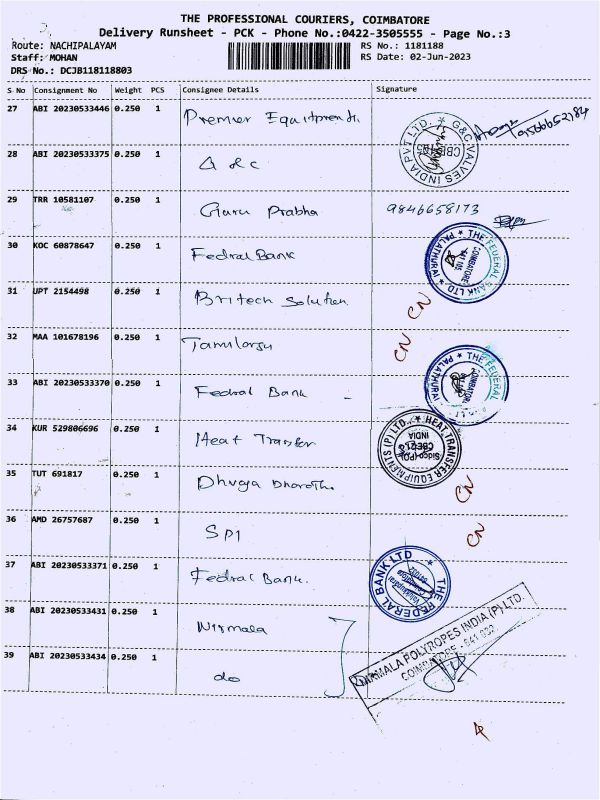 THE PROFESSIONAL COURIERS, COIMBATORE
Delivery Runsheet - PCK - Phone No.:0422-3505555 - Page No.:3
Route: NACHIPALAYAM RS No.: 1181188
Staff: MOHAN RS Date: 02-Jun-2023
DRS No.: DCJB118118803
S No Consignment No Weight PCS Consignee Details Signature
27 ABI 20230533446 0.250 1 Premier Equitprents
G&C VALVES INDIA PVT LTD.
28 ABI 20230533375 0.250 1 G&C
29 TRR 10581107 0.250 1 Guru Prabha 9846658173
30 KOC 60878647 0.250 1 Fedral Bank
THE FEDERAL BANK LTD PALATHURAI COIMBATORE 641 105
31 UPT 2154498 0.250 1 Britech Solution CN
32 MAA 101678196 0.250 1 Tamilarsu CN
33 ABI 20230533370 0.250 1 Fedral Bank -
THE FEDERAL PALATHURAI
34 KUR 529806696 0.250 1 Heat Transfer
HEAT TRANSFER EQUIPMENTS (P) LTD. INDIA
35 TUT 691817 0.250 1 CN
36 AMD 26757687 0.250 1 SPI CN
37 ABI 20230533371 0.250 1 Fedral Bank.
THE FEDERAL BANK LTD
38 ABI 20230533431 0.250 1 Nirmala
NIRMALA POLYROPES INDIA (P) LTD.
COIMBATORE - 641 032
39 ABI 20230533434 0.250 1 do